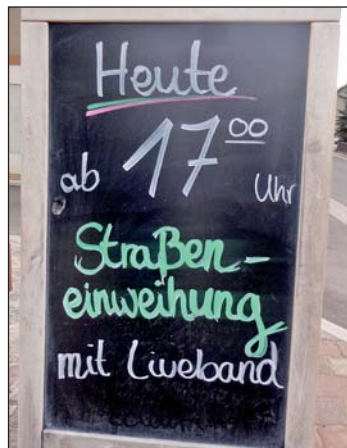 Heute
ab 17⁰⁰ Uhr
Straßen-
einweihung
mit Liveband